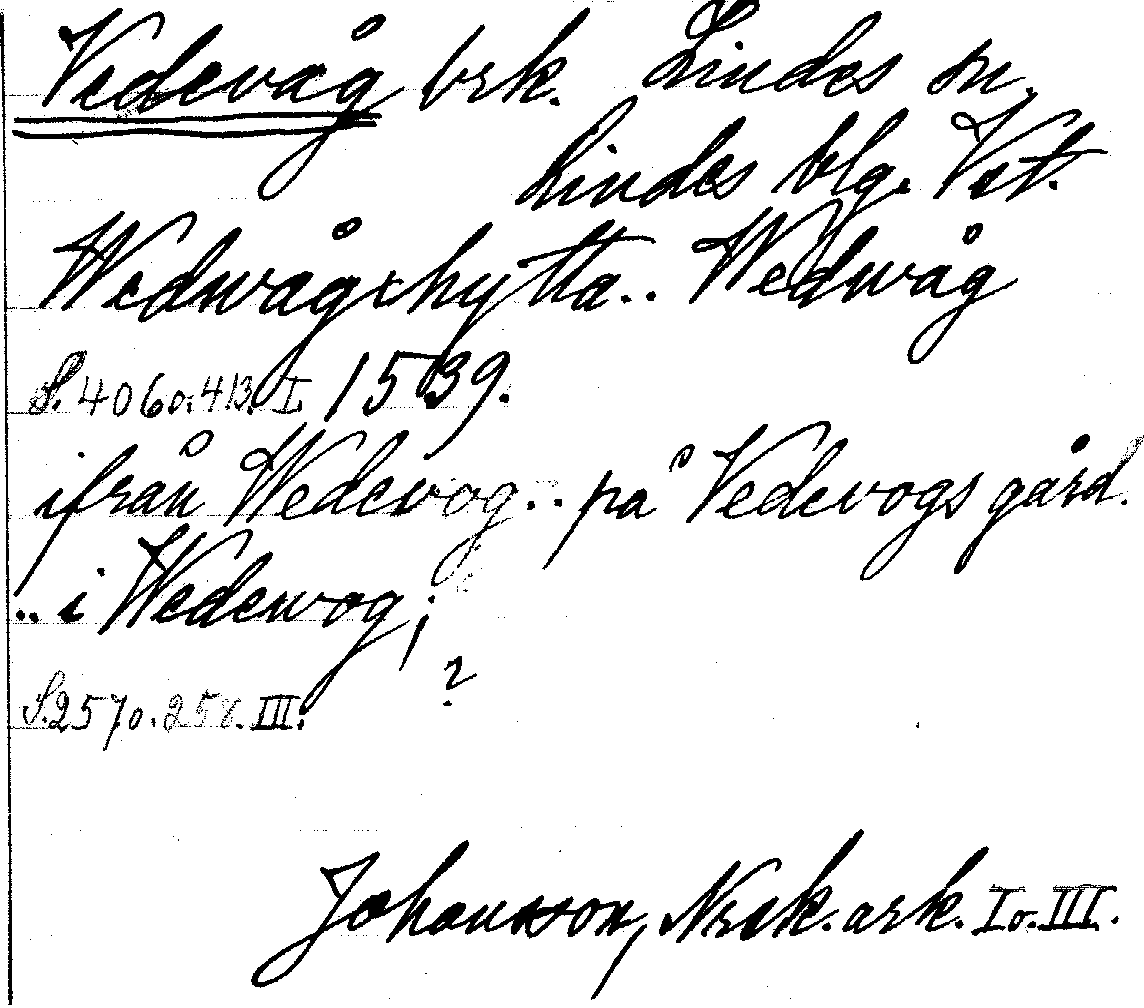 Vedevåg brk. Lindes sn.
Lindes blg. Vst.
Wedwågxhytta.. Wedwåg
S. 406 o. 413. I. 1539.
ifrån Wedevog.. på Vedevogs gård.
.. i Wedewog;
?
S. 257 o. 258. III.
Johansson, Nrsk. ark. I o. III.